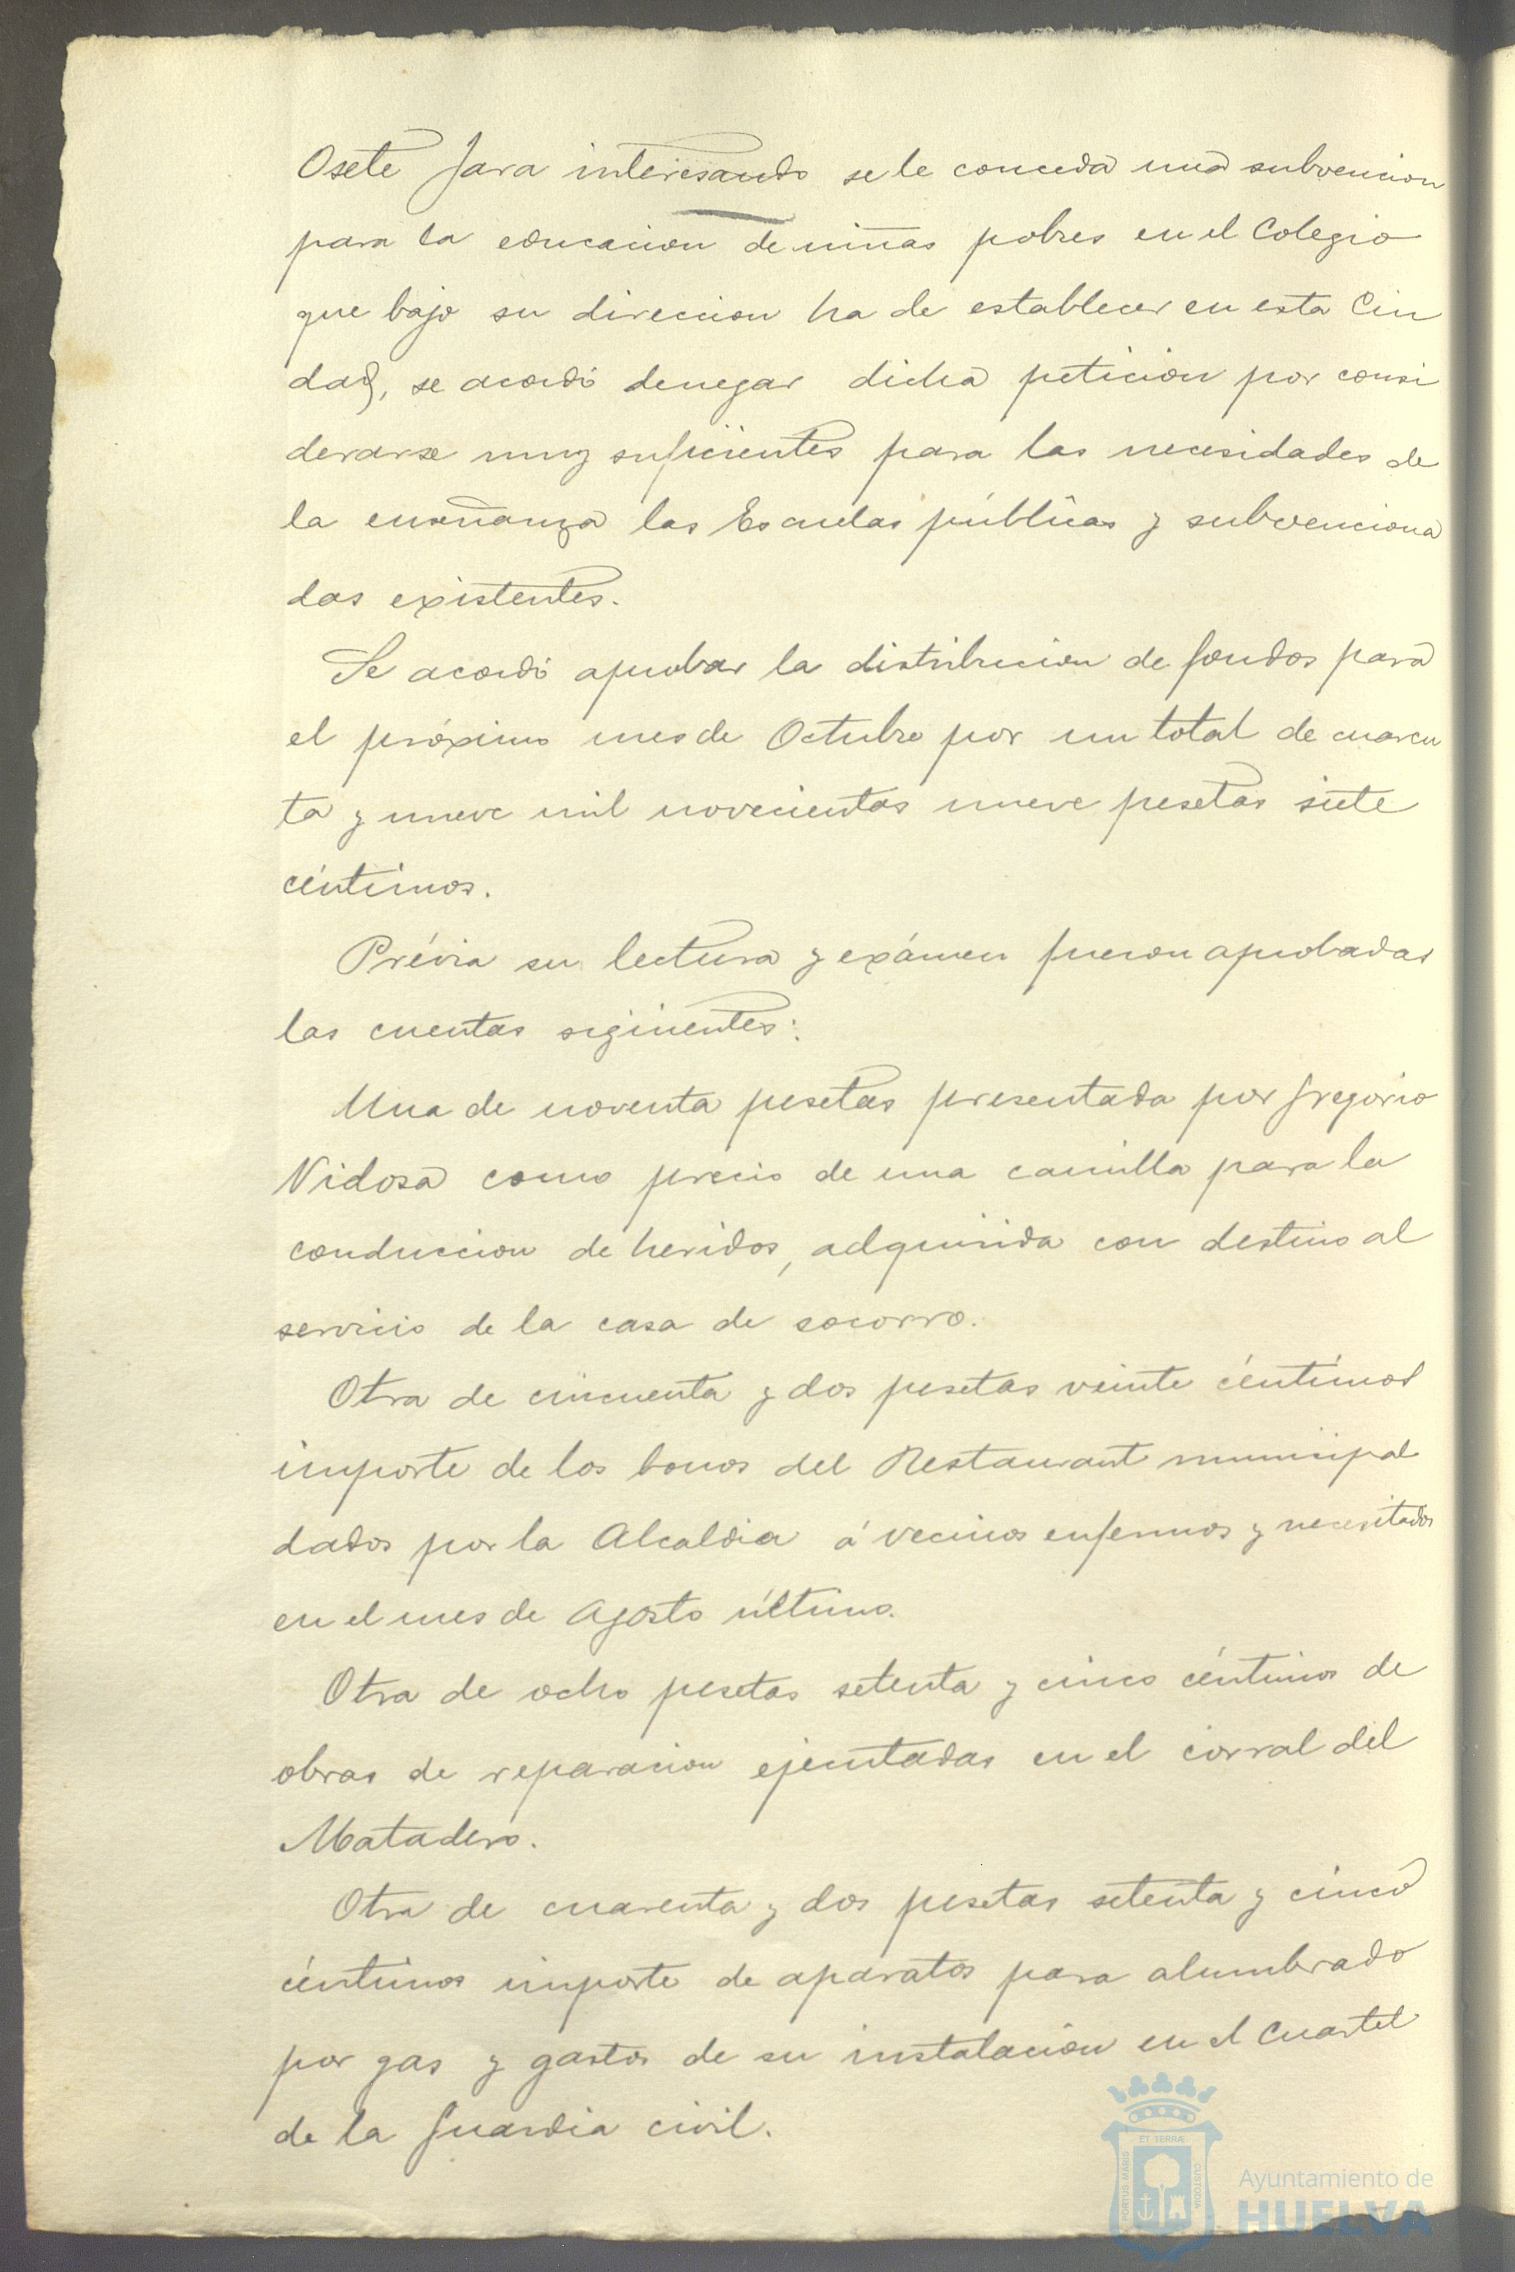 Osete Jara interesando se le conceda una subvencion
para la educacion de niñas pobres en el Colegio
que bajo su direccion ha de establecer en esta Ciu
dad, se acordó denegar dicha peticion por consi
derarse muy suficientes para las necesidades de
la enseñanza las Escuelas públicas y subvenciona
das existentes.
Se acordó aprobar la distribucion de fondos para
el próximo mes de Octubre por un total de cuaren
ta y nueve mil novecientas nueve pesetas siete
céntimos.
Prévia su lectura y exámen fueron aprobadas
las cuentas siguientes:
Una de noventa pesetas presentada por Gregorio
Vidosa como precio de una camilla para la
conduccion de heridos, adquirida con destino al
servicio de la casa de socorro.
Otra de cincuenta y dos pesetas veinte céntimos
importe de los bonos del Restaurant municipal
dados por la Alcaldia á vecinos enfermos y necesitados
en el mes de Agosto último.
Otra de ocho pesetas setenta y cinco céntimos de
obras de reparacion ejecutadas en el corral del
Matadero.
Otra de cuarenta y dos pesetas setenta y cinco
céntimos importe de aparatos para alumbrado
por gas y gastos de su instalacion en el Cuartel
de la Guardia civil.
PORTUS MARIS
ET TERRÆ
CUSTODIA
Ayuntamiento de
HUELVA